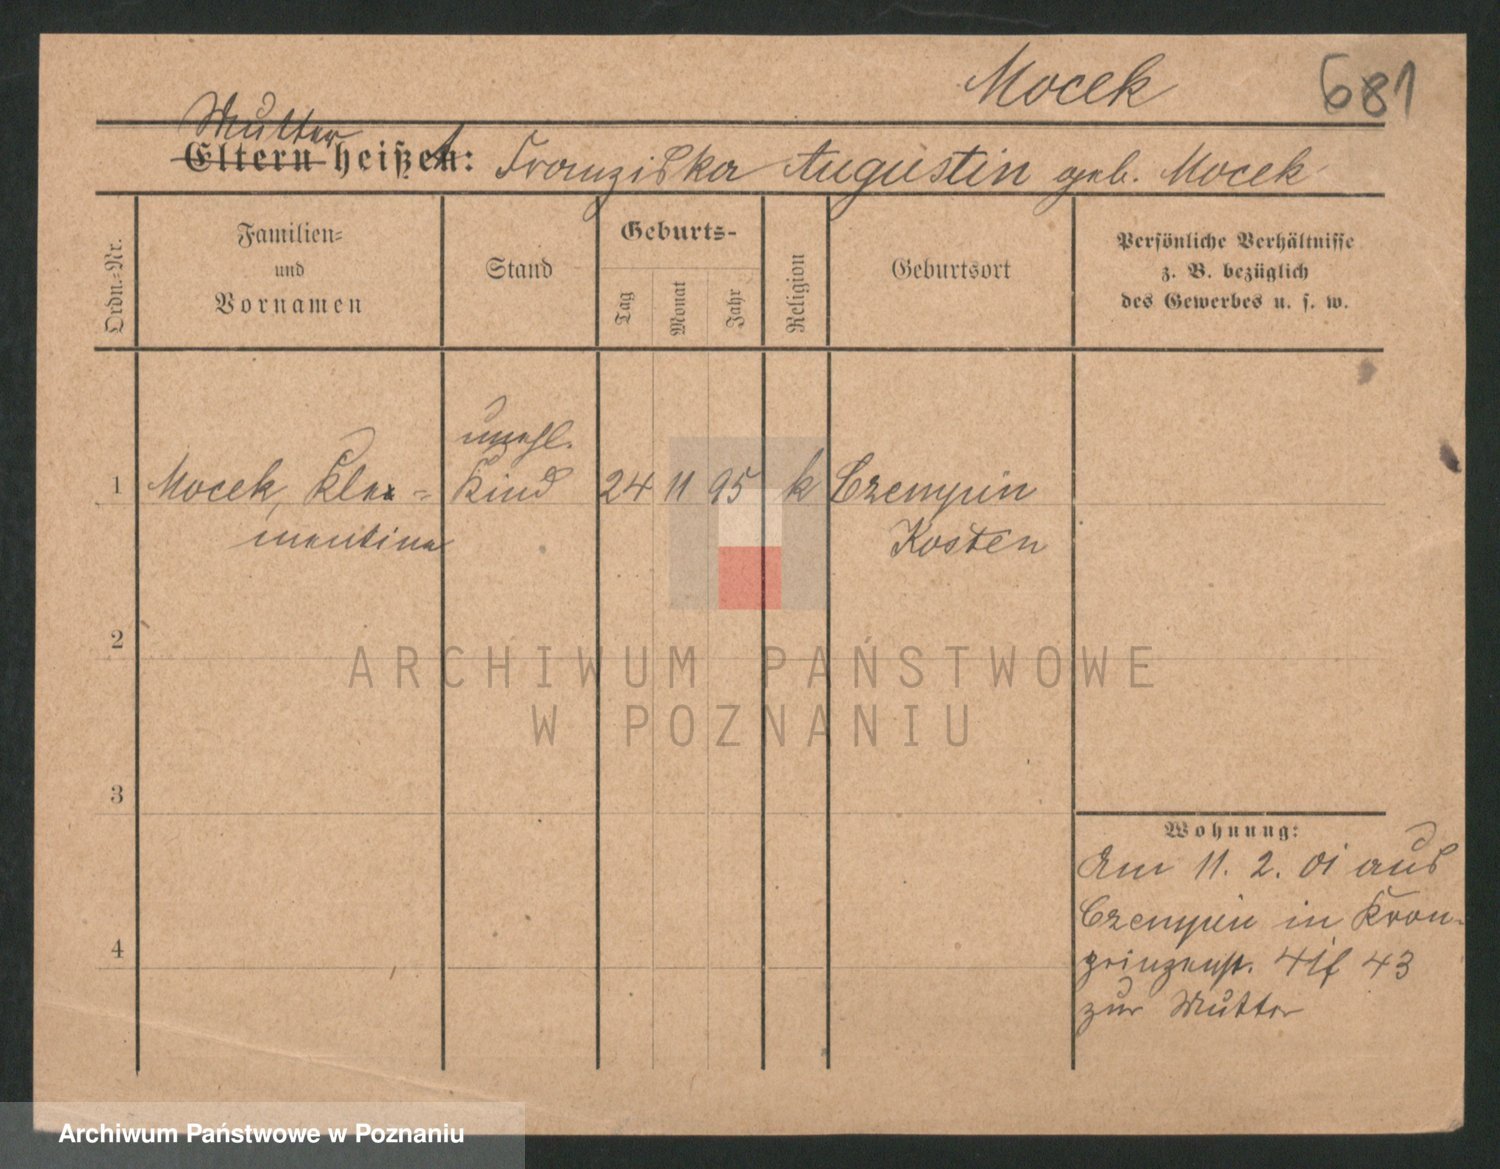 Mocek 681
Mutter
Eltern heißen: Franziska Augustin geb. Mocek
Ordn.=Nr.
Familien=
und
Vornamen
Stand
Geburts-
Tag
Monat
Jahr
Religion
Geburtsort
Persönliche Verhältnisse
z. B. bezüglich
des Gewerbes u. s. w.
unehl.
1 Mocek, Kle= Kind 24 11 95 k Czempin
mentina Kosten
2
ARCHIWUM PAŃSTWOWE
W POZNANIU
3
Wohnung:
Am 11. 2. 01 aus
Czempin in Kron-
prinzenstr. 43
zur Mutter
4
Archiwum Państwowe w Poznaniu